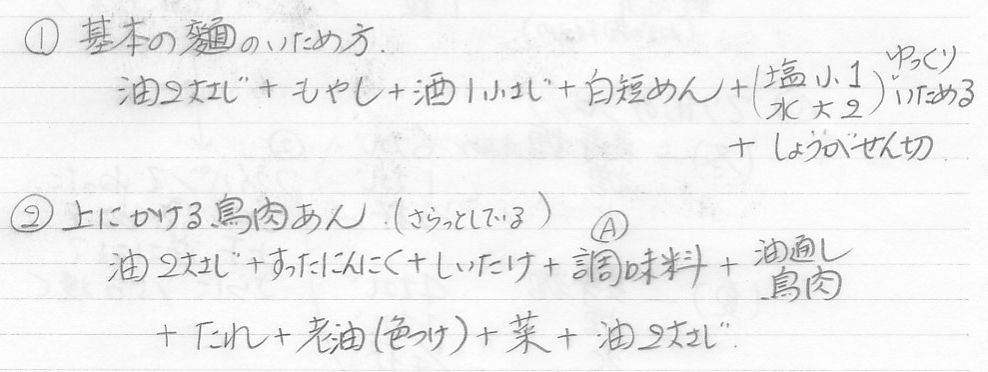 ① 基本の麺のいため方.
油2大さじ + もやし + 酒1小さじ + 白短めん + (塩小1 水大2) ゆっくりいためる
+ しょうがせん切
② 上にかける鳥肉あん.(さらっとしている)
油2大さじ + すったにんにく + しいたけ + Ⓐ調味料 + 油通し鳥肉
+ たれ + 老油(色つけ) + 菜 + 油2大さじ.